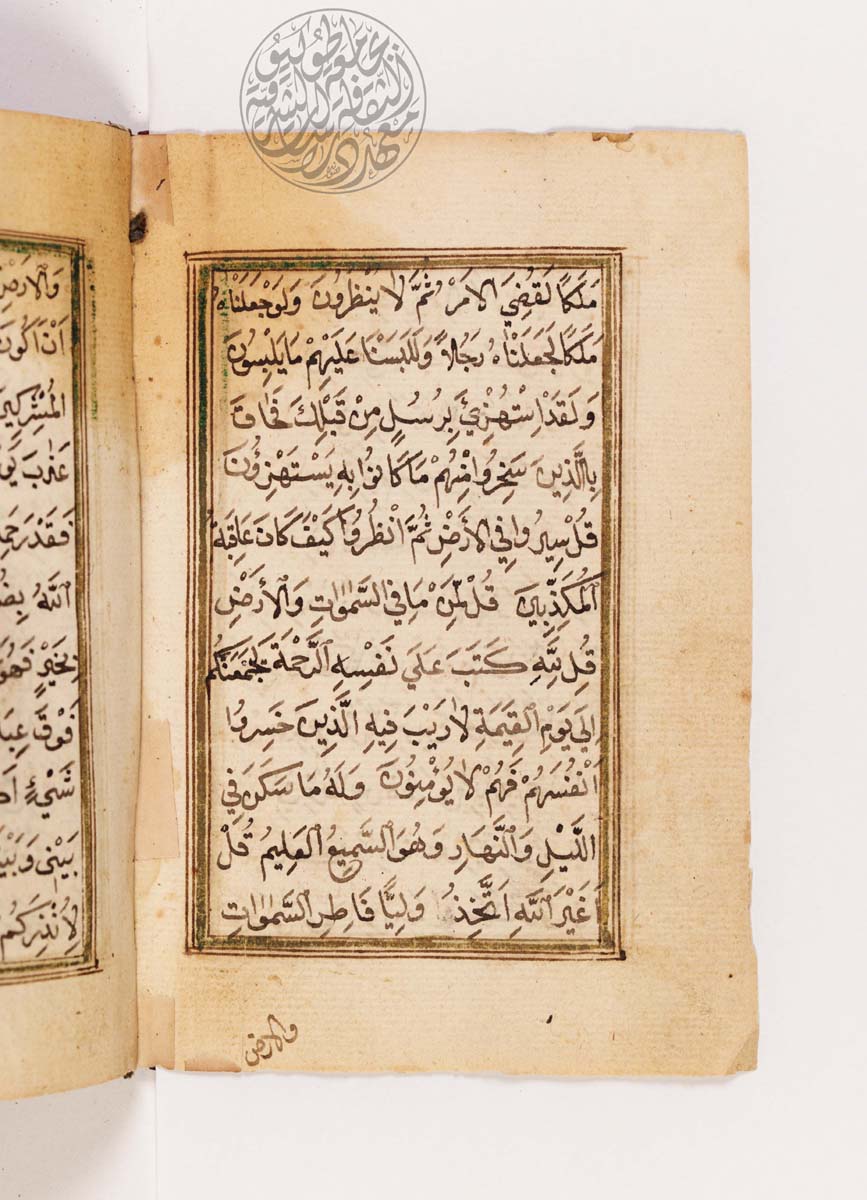 مَلَكًا لَقُضِيَ الاَمْرُ ثُمَّ لَا يُنْظَرُونَ وَلَوْ جَعَلْنَاهُ
مَلَكًا لَجَعَلْنَاهُ رَجُلاً وَلَلَبَسْنَا عَلَيْهِمْ مَا يَلْبِسُونَ
وَلَقَدْ اِسْتُهْزِئَ بِرُسُلٍ مِنْ قَبْلِكَ فَحَاقَ
بِالَّذِينَ سَخِرُوا مِنْهُمْ مَا كَانُوا بِهِ يَسْتَهْزِؤُنَ
قُلْ سِيرُوا فِي الْأَرْضِ ثُمَّ انْظُرُوا كَيْفَ كَانَ عَاقِبَةُ
الْمُكَذِّبِينَ قُلْ لِمَنْ مَا فِي السَّمٰوَاتِ وَالْأَرْضِ
قُلْ لِلَّهِ كَتَبَ عَلَي نَفْسِهِ الرَّحْمَةَ لَيَجْمَعَنَّكُمْ
اِلَي يَوْمِ الْقِيٰمَةِ لَا رَيْبَ فِيهِ الَّذِينَ خَسِرُوا
اَنْفُسَهُمْ فَهُمْ لَا يُؤْمِنُونَ وَلَهُ مَا سَكَنَ فِي
اللَّيْلِ وَالنَّهَارِ وَهُوَ السَّمِيعُ الْعَلِيمُ قُلْ
اَغَيْرَ اللَّهِ اَتَّخِذُ وَلِيًّا فَاطِرِ السَّمٰوَاتِ
والارض
وَالاَرْضِ
اَنْ اَكُونَ
الْمُشْرِكِينَ
عَذَابَ يَوْ
فَقَدْ رَحِمَ
اللَّهُ بِضُ
بِخَيْرٍ فَهُوَ
فَوْقَ عِبَا
شَيْءٍ اَ
بَيْنِي وَبَيْ
لِاُنْذِرَكُمْ